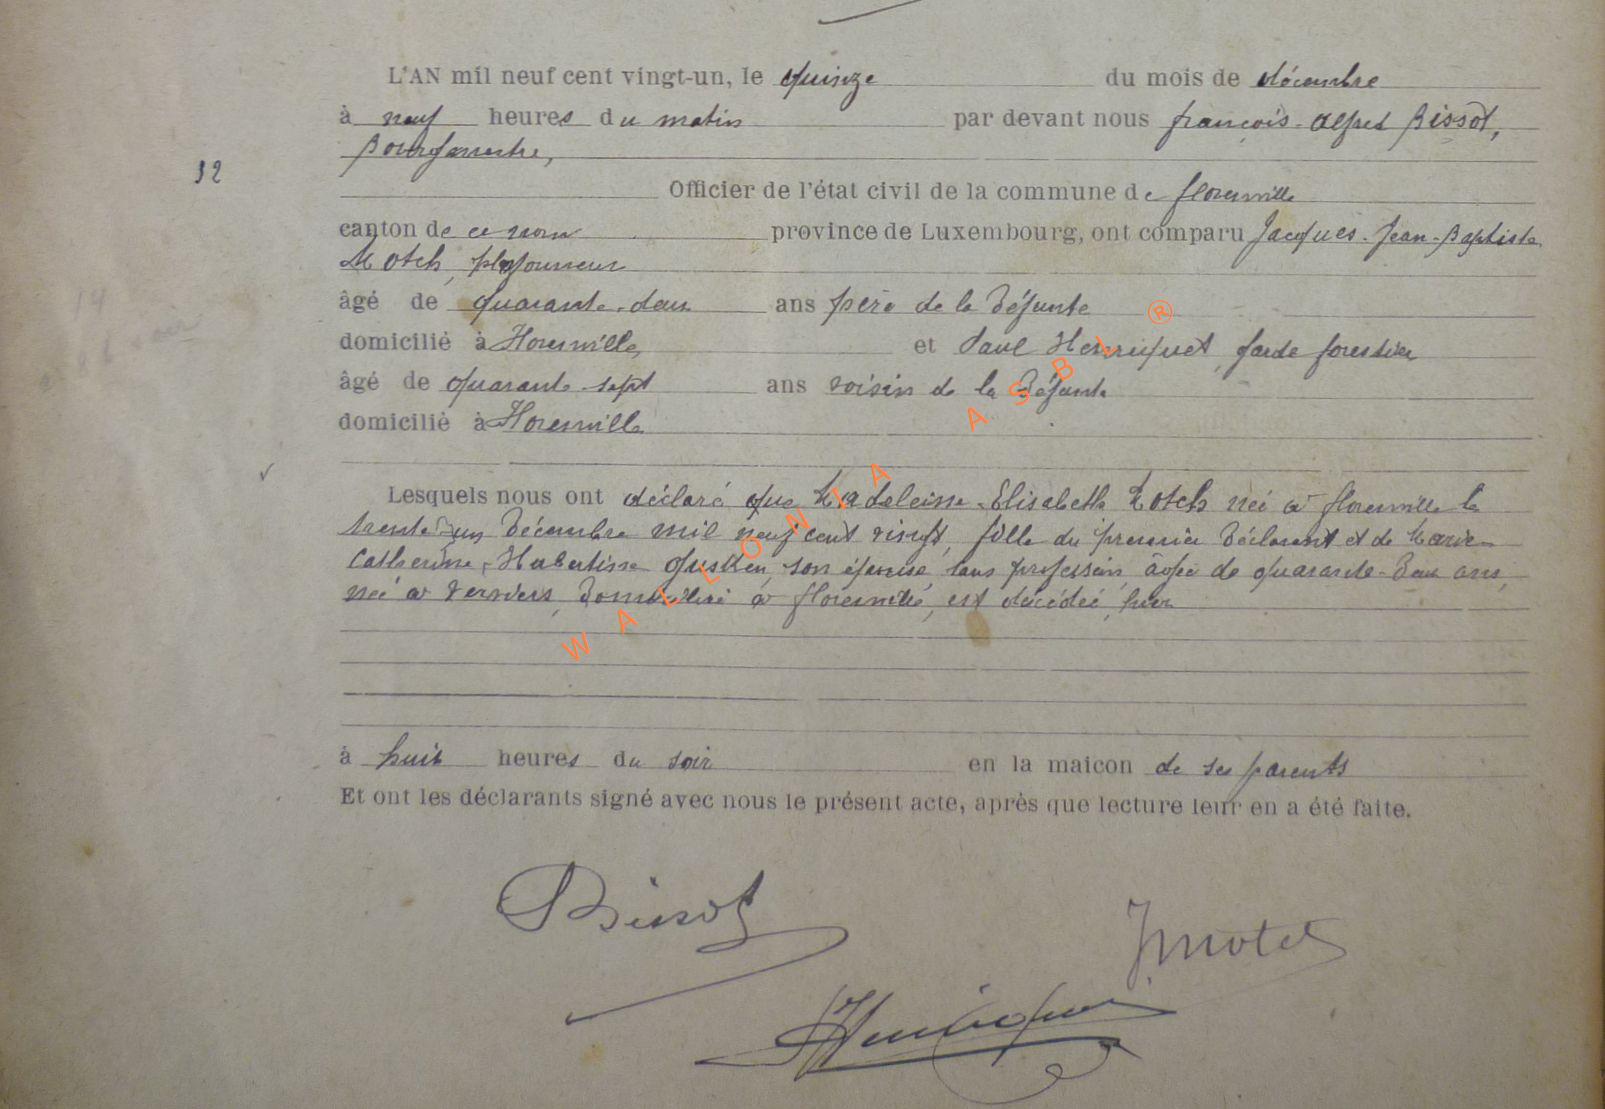 L'AN mil neuf cent vingt-un, le quinze du mois de décembre
à neuf heures du matin par devant nous françois-Alfred Bissot,
Bourgmestre,
12
Officier de l'état civil de la commune de florenville
canton de ce nom province de Luxembourg, ont comparu Jacques-Jean-Baptiste
Motch, plafonneur
âgé de quarante-deux ans père de la défunte
domicilié à Florenville, et Paul Henriquet, garde forestier
âgé de quarante-sept ans voisin de la défunte
domicilié à Florenville
Lesquels nous ont déclaré que Madeleine-Elisabeth Motch née à florenville le
trente-un Décembre mil neuf cent vingt, fille du premier Déclarant et de Marie-
Catherine-Hubertine son épouse, sans profession, âgée de quarante-deux ans,
née à Verviers, Domiciliée à florenville, est décédée, hier
à huit heures du soir en la maicon de ses parents
Et ont les déclarants signé avec nous le présent acte, après que lecture leur en a été faite.
Bissot
JMotch
Henriquet
WALLONIA ASBL ®